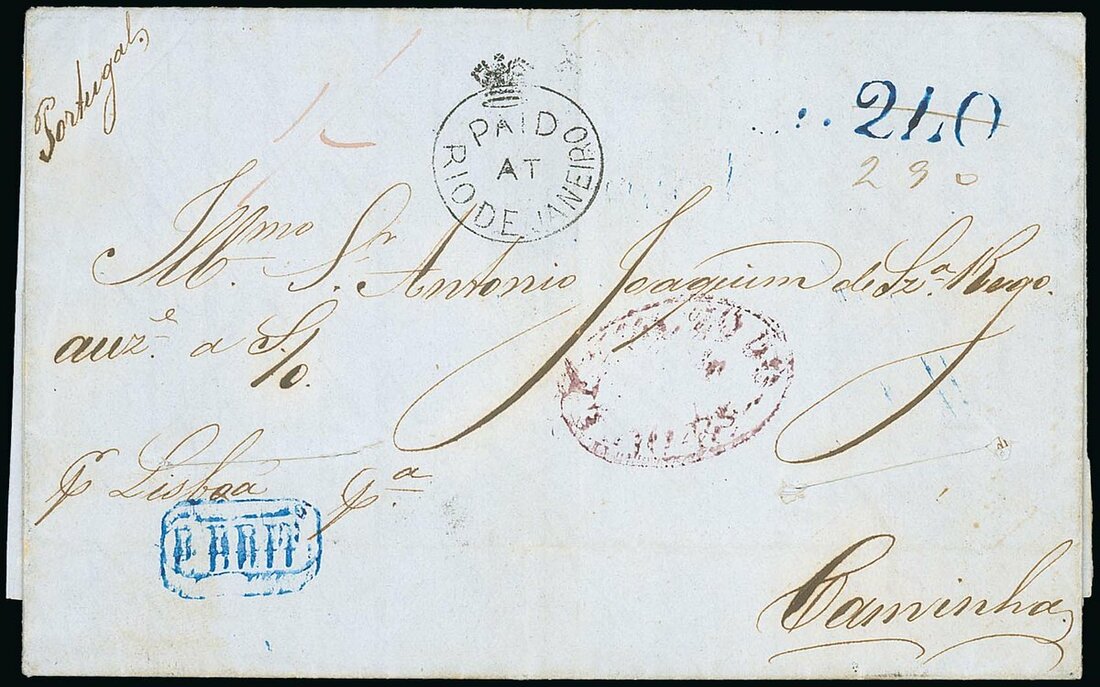 Portugal.
1/-
PAID
AT
RIO DE JANEIRO
240
290
Illmo Sr. Antonio Joaquim de Sza. Rego.
auze. a S/O.
pr Lisboa pa
Caminha